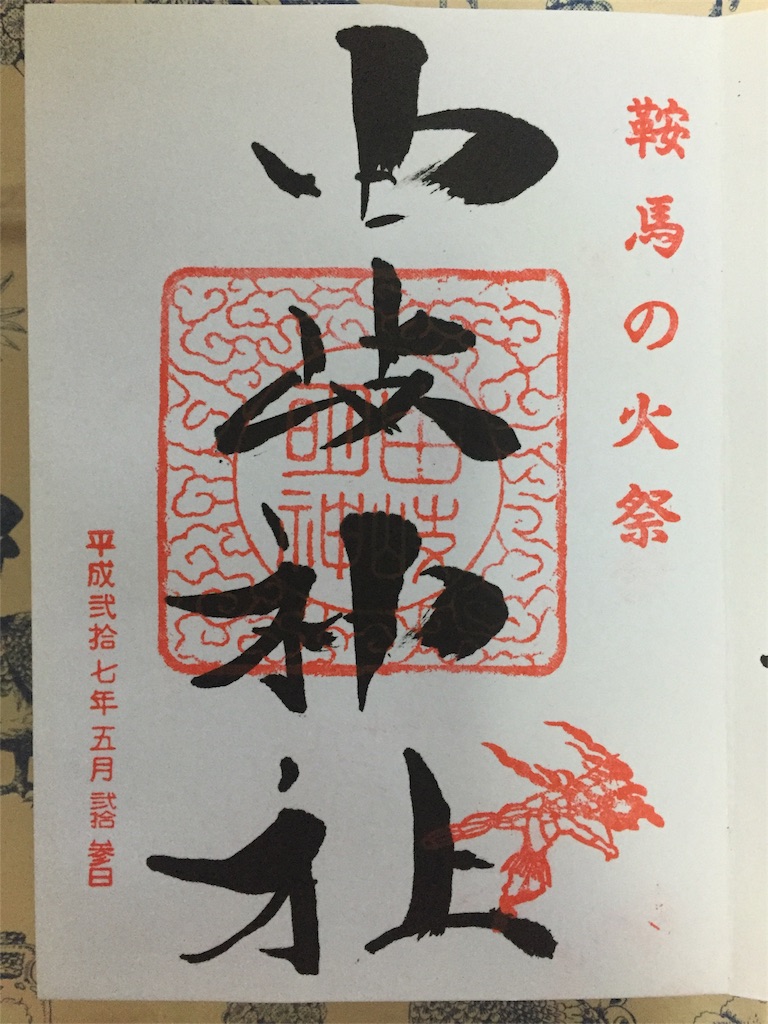 鞍馬の火祭
由岐神社
由岐
明神
平成弐拾七年五月弐拾参日